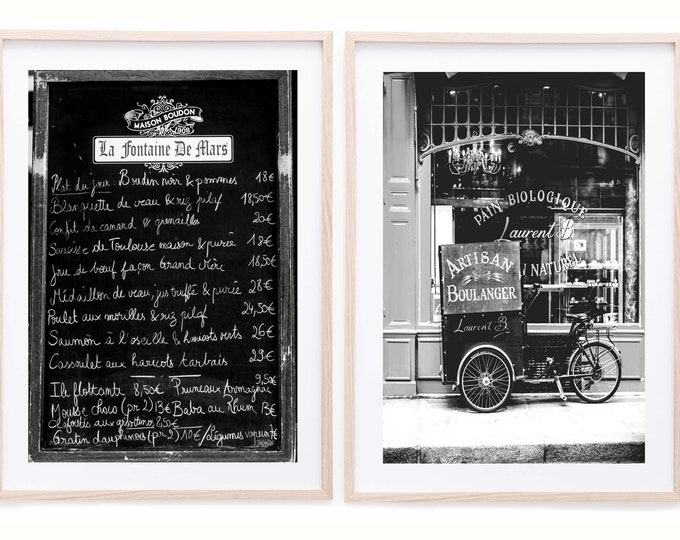 MAISON BOUDON
1908
La Fontaine De Mars
Plat du jour: Boudin noir & pommes 18€
Blanquette de veau & riz pilaf 18,50€
Confit de canard & grenailles 20€
Saucisse de Toulouse maison & purée 18€
Joue de bœuf façon Grand Mère 18,50€
Médaillon de veau, jus truffé & purée 28€
Poulet aux morilles & riz pilaf 24,50€
Saumon à l'oseille & haricots verts 26€
Cassoulet aux haricots tarbais 29€
Ile flottante 8,50€ Pruneaux Armagnac 9,50€
Mousse choco (pr 2) 13€ Baba au Rhum 13€
8,50€
Gratin dauphinois (pr 2) 10€ / Légumes vapeur 7€
PAIN BIOLOGIQUE
Laurent B.
NATUREL
ARTISAN
BOULANGER
Laurent B.